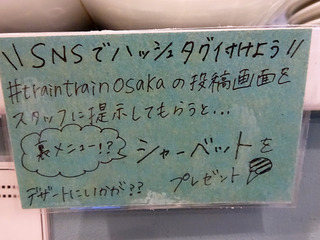 \\SNSでハッシュタグ付けよう//
#traintrainosakaの投稿画面を
スタッフに提示してもらうと...
裏メニュー!?
シャーベットを
プレゼント
デザートにいかが??